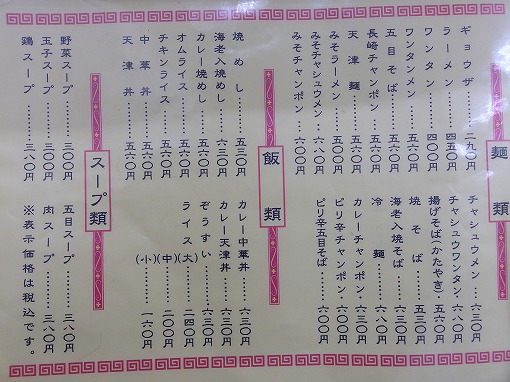 麺
ギョウザ……二九〇円
ラーメン……四五〇円
ワンタン……四〇〇円
ワンタンメン……五六〇円
五目そば……五六〇円
長崎チャンポン……五六〇円
天津麺……五六〇円
みそラーメン……五〇〇円
みそチャシュウメン……六八〇円
みそチャンポン……六〇〇円
チャシュウメン……六三〇円
チャシュウワンタン…六八〇円
揚げそば(かたやき)…五六〇円
焼そば……五三〇円
海老入焼そば……六三〇円
冷麺……六八〇円
カレーチャンポン……六三〇円
ピリ辛チャンポン……六〇〇円
ピリ辛五目そば……六〇〇円
飯類
焼めし……五三〇円
海老入焼めし……六三〇円
カレー焼めし……五六〇円
オムライス……五六〇円
チキンライス……五六〇円
中華丼……五六〇円
天津丼……五六〇円
カレー中華丼……六三〇円
カレー天津丼……六三〇円
ぞうすい……六三〇円
ライス(大)……二四〇円
(中)……二〇〇円
(小)……一六〇円
スープ類
野菜スープ……三〇〇円
玉子スープ……三〇〇円
鶏スープ……三八〇円
五目スープ……三八〇円
肉スープ……三八〇円
※表示価格は税込です。